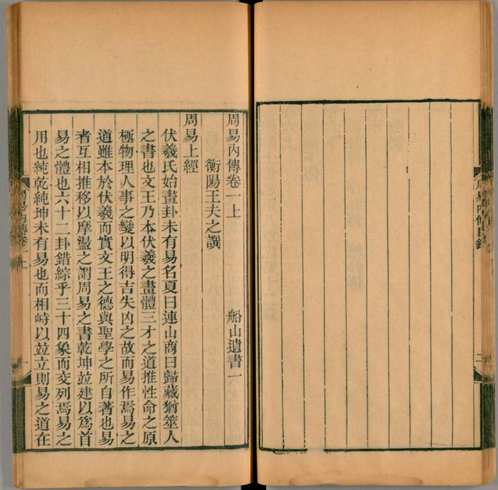 周易內傳卷一上
船山遺書一
衡陽王夫之譔
周易上經
伏羲氏始畫卦未有易名夏曰連山商曰歸藏猶筮人
之書也文王乃本伏羲之畫體三才之道推性命之原
極物理人事之變以明得吉失凶之故而易作焉易之
道雖本於伏羲而實文王之德與聖學之所自著也易
者互相推移以摩盪之謂周易之書乾坤竝建以爲首
易之體也六十二卦錯綜乎三十四象而交列焉易之
用也純乾純坤未有易也而相峙以竝立則易之道在